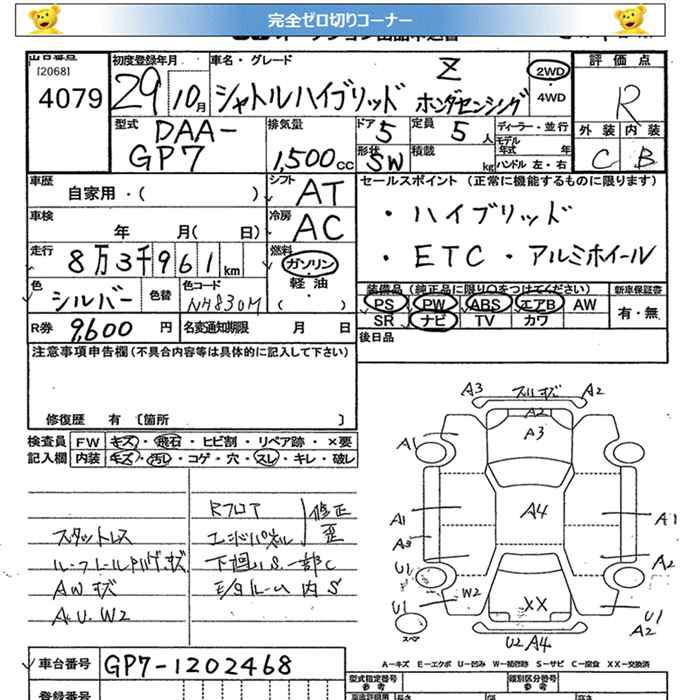 完全ゼロ切りコーナー
[2068]
4079
初度登録年月
29 10月
車名・グレード
シャトルハイブリッド ホンダセンシング
Z
2WD
4WD
評価点
R
外装 内装
C B
型式
DAA-
GP7
排気量
1,500cc
ドア 5
定員 5人
形状 SW
積載 kg
ディーラー・並行
モデル年式 年
ハンドル 左・右
車歴
自家用・( )
シフト AT
車検
年 月( 日)
冷房 AC
走行
8万3千961km
燃料
ガソリン
軽油
・( )
色
シルバー
色替
色コード
NH830M
R券 9,600円
名変通知期限 月 日
セールスポイント (正常に機能するものに限ります)
・ハイブリッド
・ETC・アルミホイール
装備品 (純正品に限り○をつけてください)
新車保証書
PS PW ABS エアB AW
有・無
SR ナビ TV カワ
後日品
注意事項申告欄(不具合内容等は具体的に記入して下さい)
修復歴 有 [箇所 ]
検査員 FW キズ・飛石・ヒビ割・リペア跡・×要
記入欄 内装 キズ・汚レ・コゲ・穴・スレ・キレ・破レ
スタットレス
AWキズ
A.U.W2
Rフロア
修正
歪
下廻りS.一部C
内S
A3 A2
A2
A3
A1
A4
A1 A1
A3 A2
U1
W2
U1
XX
U1
A2
スペア
U2A4
A-キズ E-エクボ U-凹み W-補修跡 S-サビ C-腐食 XX-交換済
車台番号 GP7-1202468
登録番号
型式指定番号
参考
類別区分番号
参考